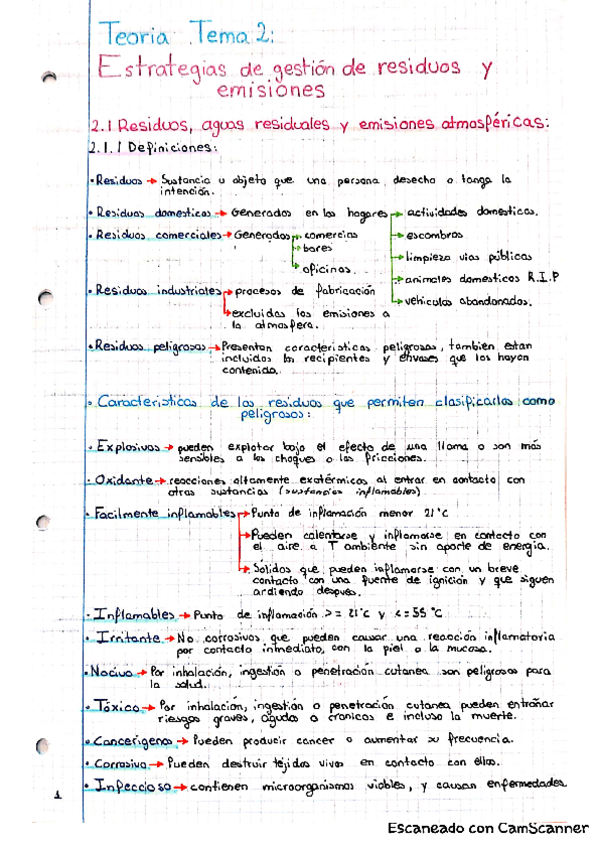 Teoria Tema 2:
Estrategias de gestión de residuos y
emisiones
2.1 Residuos, aguas residuales y emisiones atmosféricas:
2.1.1 Definiciones:
• Residuos → Sustancia u objeto que una persona desecha o tenga la
intención.
• Residuos domesticos → Generados en los hogares → actividades domesticas.
→ escombros
→ limpieza vias públicas
→ animales domesticos R.I.P
→ vehiculos abandonados.
• Residuos comerciales → Generados → comercios
→ bares
→ oficinas.
• Residuos industriales → procesos de fabricación
→ excluidas las emisiones a
la atmosfera.
• Residuos peligrosos → Presentan caracteristicas peligrosas, tambien estan
incluidos los recipientes y envases que los hayan
contenido.
• Caracteristicas de los residuos que permiten clasificarlos como
peligrosos:
• Explosivos → pueden explotar bajo el efecto de una llama o son más
sensibles a los choques o las fricciones.
• Oxidante → reacciones altamente exotérmicas al entrar en contacto con
otras sustancias (sustancias inflamables)
• Facilmente inflamables → Punto de inflamación menor 21°c
→ Pueden calentarse y inflamarse en contacto con
el aire a T ambiente sin aporte de energia.
→ Sólidos que pueden inflamarse con un breve
contacto con una fuente de ignición y que siguen
ardiendo despues.
• Inflamables → Punto de inflamación >= 21°c y <= 55°C
• Irritante → No corrosivos que pueden causar una reacción inflamatoria
por contacto inmediato, con la piel o la mucosa.
• Nocivo → Por inhalación, ingestión o penetración cutanea son peligrosos para
la salud.
• Tóxico → Por inhalación, ingestión o penetración cutanea pueden entrañar
riesgos graves, agudos o cronicos e incluso la muerte.
• Cancerigeno → Pueden producir cancer o aumentar su frecuencia.
• Corrosivo → Pueden destruir tejidos vivos en contacto con ellos.
• Infeccioso → contienen microorganismos viables, y causan enfermedades
1
Escaneado con CamScanner